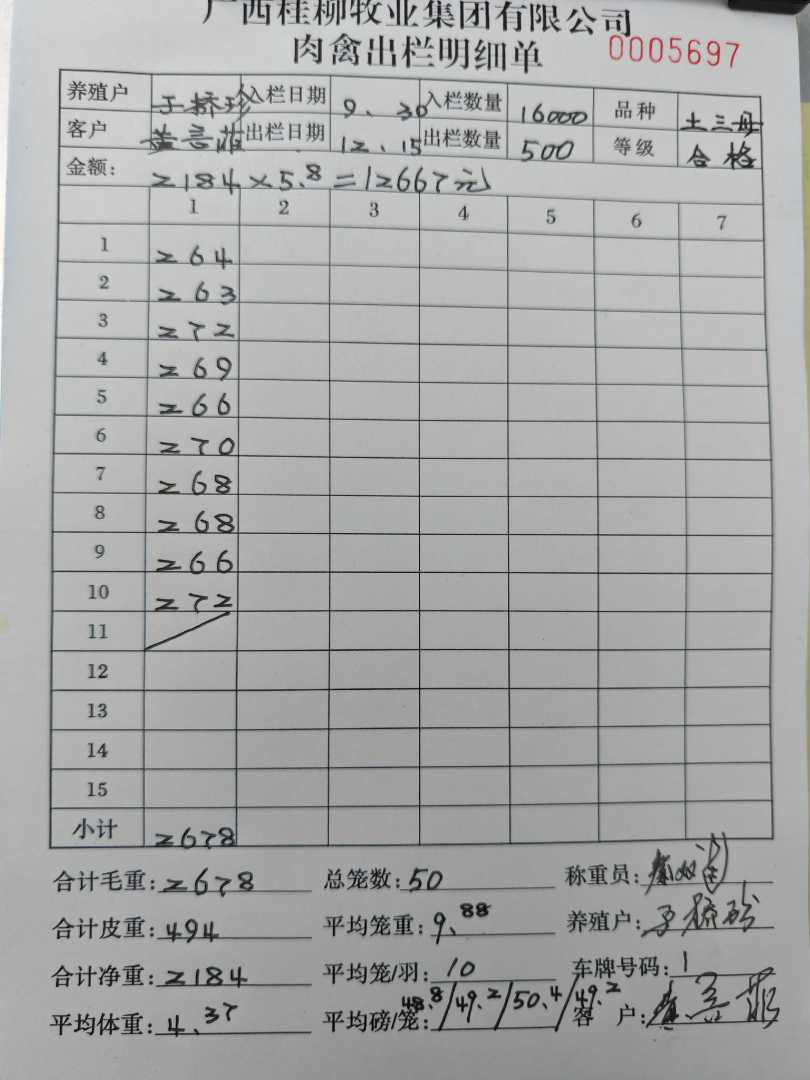 广西桂柳牧业集团有限公司
肉禽出栏明细单 0005697
养殖户 入栏日期 9.30 入栏数量 16000 品种 土三母
客户 出栏日期 12.15 出栏数量 500 等级 合格
金额: 2184×5.8=12667元
1 2 3 4 5 6 7
1 264
2 263
3 272
4 269
5 266
6 270
7 268
8 268
9 266
10 272
11
12
13
14
15
小计 2678
合计毛重: 2678 总笼数: 50 称重员:
合计皮重: 494 平均笼重: 9.88 养殖户:
合计净重: 2184 平均笼/羽: 10 车牌号码: 1
平均体重: 4.37 平均磅/笼: 48.8/49.2/50.4/49.2 客 户: